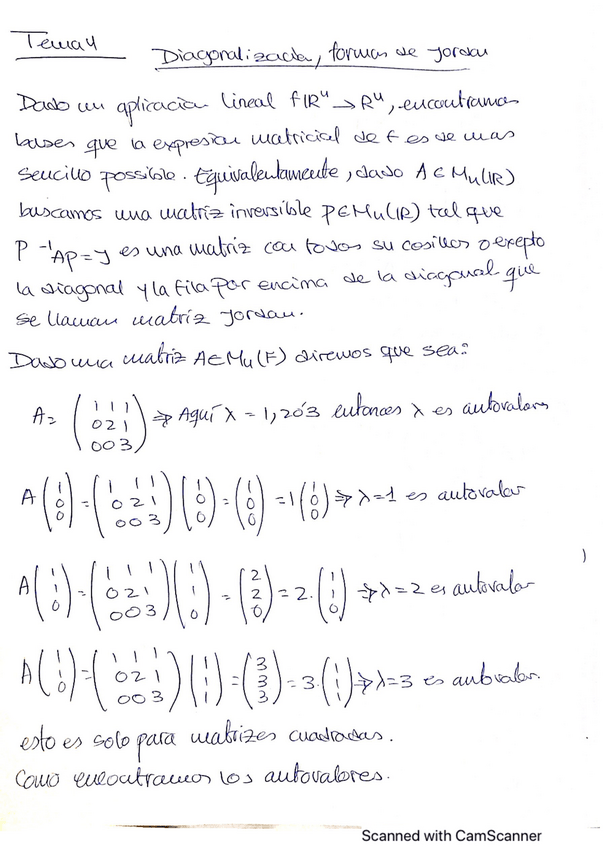 Tema 4
Diagonalización, formas de Jordan
Dado un aplicación lineal f ℝⁿ → ℝⁿ, encontramos
bases que la expresión matricial de f es de mas
sencillo possible. Equivalentemente, dado A ∈ Mn(ℝ)
buscamos una matriz inversible P ∈ Mn(ℝ) tal que
P⁻¹AP = J es una matriz con todos su cosillos 0 exepto
la diagonal y la fila por encima de la diagonal que
se llaman matriz Jordan.
Dado una matriz A ∈ Mn(F) diremos que sea:
A = (1 1 1 / 0 2 1 / 0 0 3) ⇒ Aquí λ = 1, 2 ó 3 entonces λ es autovalores
A (1 / 0 / 0) = (1 1 1 / 0 2 1 / 0 0 3) (1 / 0 / 0) = (1 / 0 / 0) = 1 (1 / 0 / 0) ⇒ λ = 1 es autovalor
A (1 / 1 / 0) = (1 1 1 / 0 2 1 / 0 0 3) (1 / 1 / 0) = (2 / 2 / 0) = 2 · (1 / 1 / 0) ⇒ λ = 2 es autovalor
A (1 / 1 / 0) = (1 1 1 / 0 2 1 / 0 0 3) (1 / 1 / 1) = (3 / 3 / 3) = 3 · (1 / 1 / 1) ⇒ λ = 3 es autovalor.
esto es solo para matrizes cuadradas.
Como encontramos los autovalores.
Scanned with CamScanner